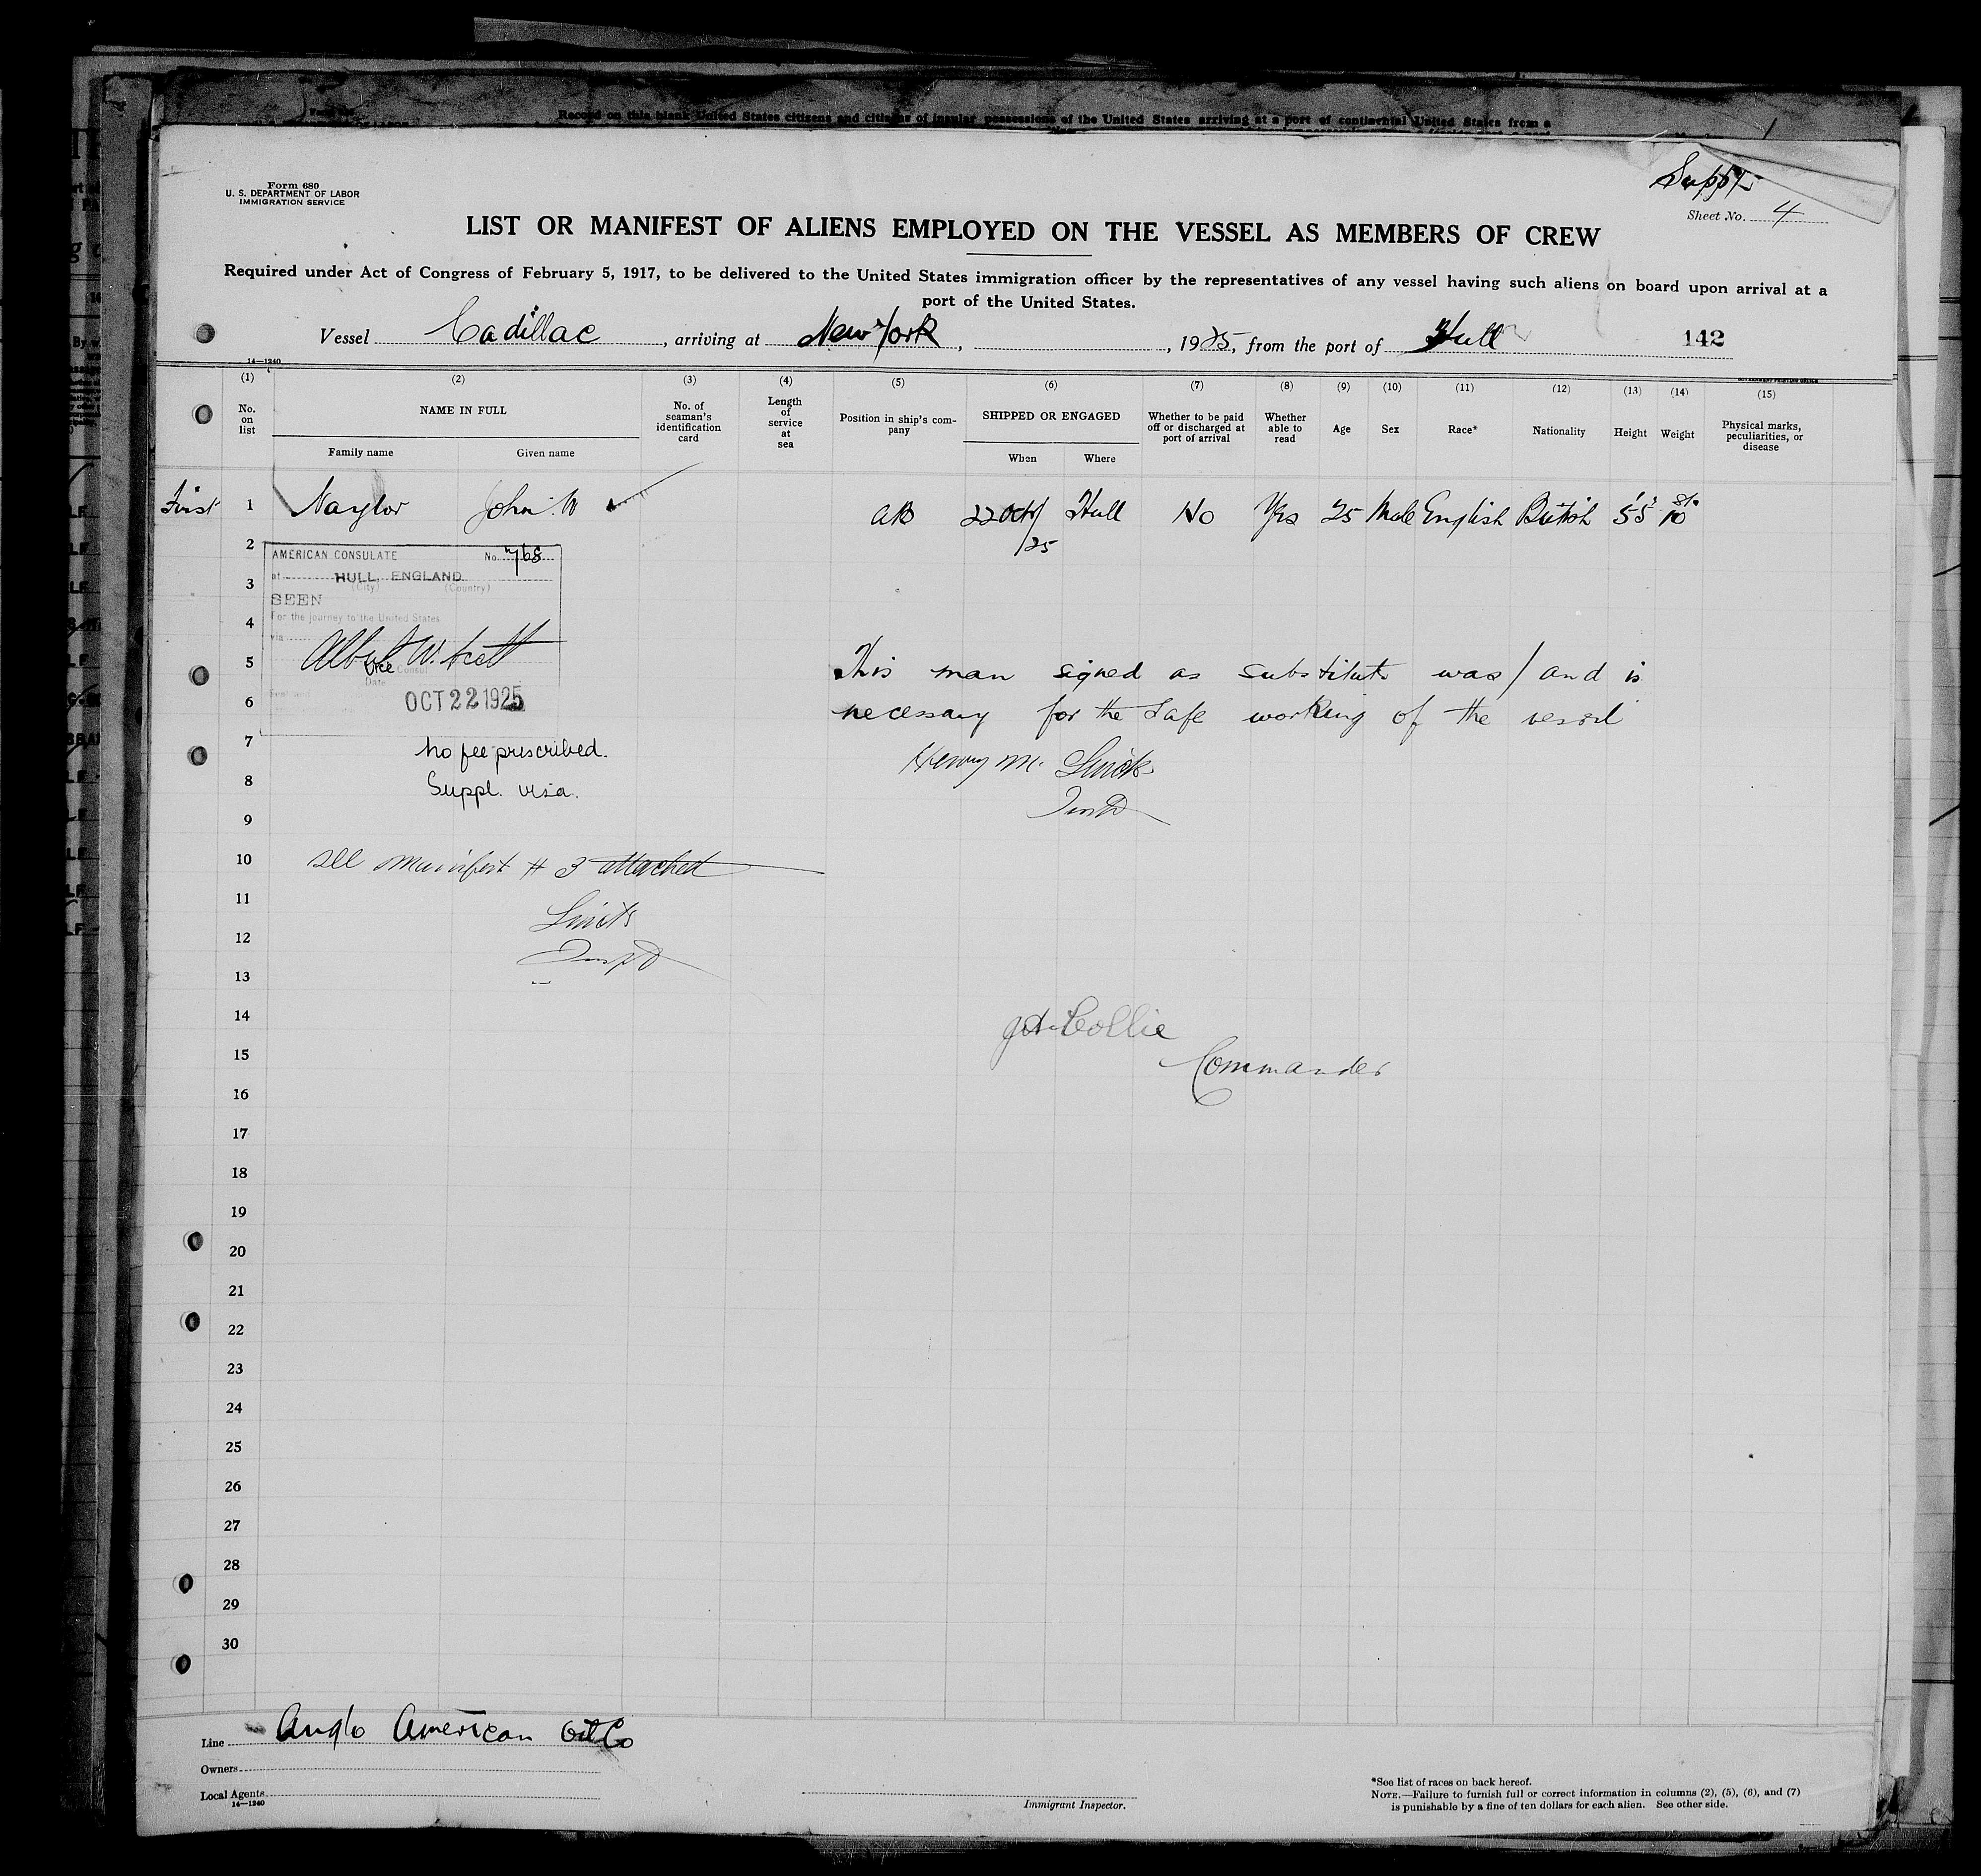 Record on this blank United States citizens and citizens of insular possessions of the United States arriving at a port of continental United States from a
Form 680
U. S. DEPARTMENT OF LABOR
IMMIGRATION SERVICE
Suppl.
Sheet No. 4
LIST OR MANIFEST OF ALIENS EMPLOYED ON THE VESSEL AS MEMBERS OF CREW
Required under Act of Congress of February 5, 1917, to be delivered to the United States immigration officer by the representatives of any vessel having such aliens on board upon arrival at a
port of the United States.
Vessel Cadillac, arriving at New York, , 1925, from the port of Hull 142
14—1240
(1) (2) (3) (4) (5) (6) (7) (8) (9) (10) (11) (12) (13) (14) (15)
No. on list
NAME IN FULL
Family name Given name
No. of seaman's identification card
Length of service at sea
Position in ship's company
SHIPPED OR ENGAGED
When Where
Whether to be paid off or discharged at port of arrival
Whether able to read
Age
Sex
Race*
Nationality
Height
Weight
Physical marks, peculiarities, or disease
First 1 Naylor John W AB 22 Oct/25 Hull No Yes 25 Male English British 5'5" 10 st.
2
AMERICAN CONSULATE No. 768
at HULL, ENGLAND
(City) (Country)
3
SEEN
For the journey to the United States
4
via
Albert W. Scott
5
Vice Consul
Date
This man signed as substitute was/and is
6
OCT 22 1925
necessary for the safe working of the vessel
7
No fee prescribed.
Henry M.
8
Suppl. visa.
9
10 see manifest # 3 attached
11
12
13
14
Collie
15
Commander
16
17
18
19
20
21
22
23
24
25
26
27
28
29
30
Line Anglo American Oil Co
Owners
Local Agents
14—1240
Immigrant Inspector.
*See list of races on back hereof.
NOTE.—Failure to furnish full or correct information in columns (2), (5), (6), and (7)
is punishable by a fine of ten dollars for each alien. See other side.